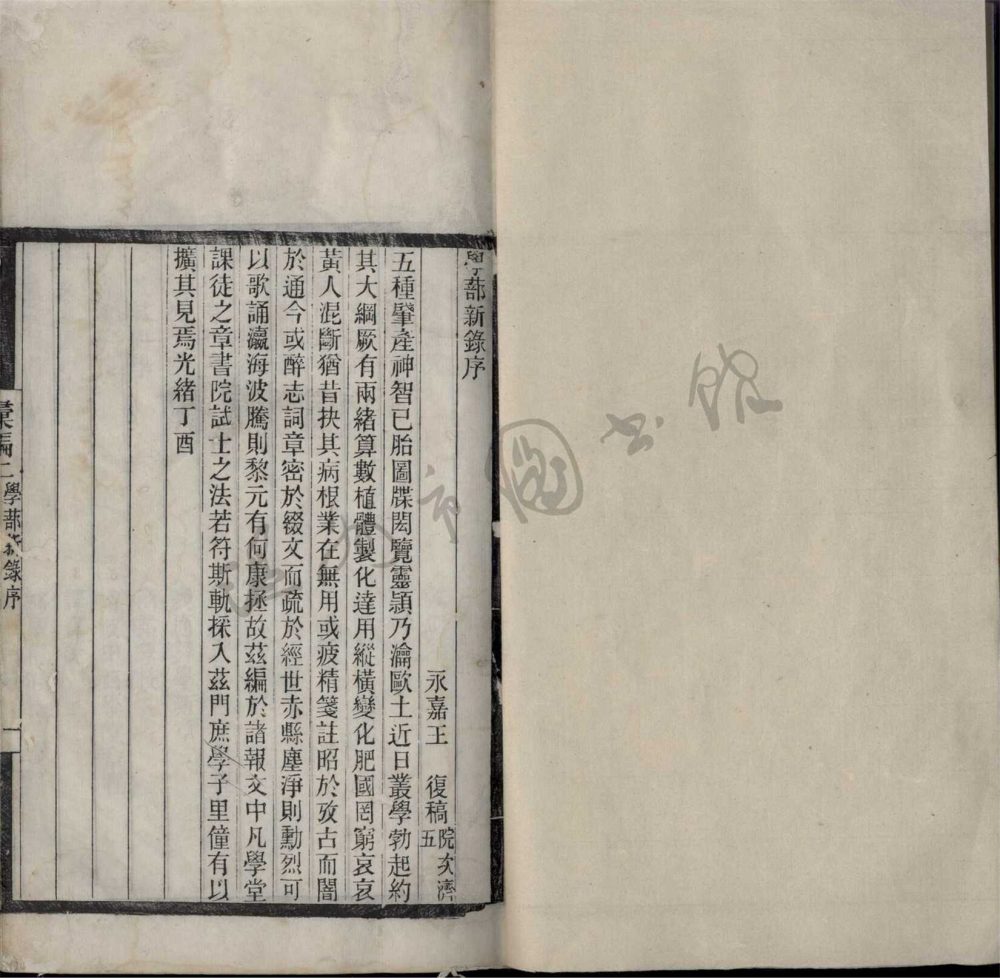 學部新錄序
永嘉王　復稿院次濟五
五種肇產神智已胎圖牒閎覽靈頴乃瀹歐土近日叢學勃起約
其大綱厥有兩緒算數植體製化達用縱橫變化肥國罔窮哀哀
黃人混斷猶昔抉其病根業在無用或疲精箋註昭於攷古而闇
於通今或醉志詞章密於綴文而疏於經世赤縣塵淨則勳烈可
以歌誦瀛海波騰則黎元有何康拯故茲編於諸報文中凡學堂
課徒之章書院試士之法若符斯軌採入茲門庶學子里僮有以
擴其見焉光緒丁酉
彙編二學部新錄序
一
市圖書館